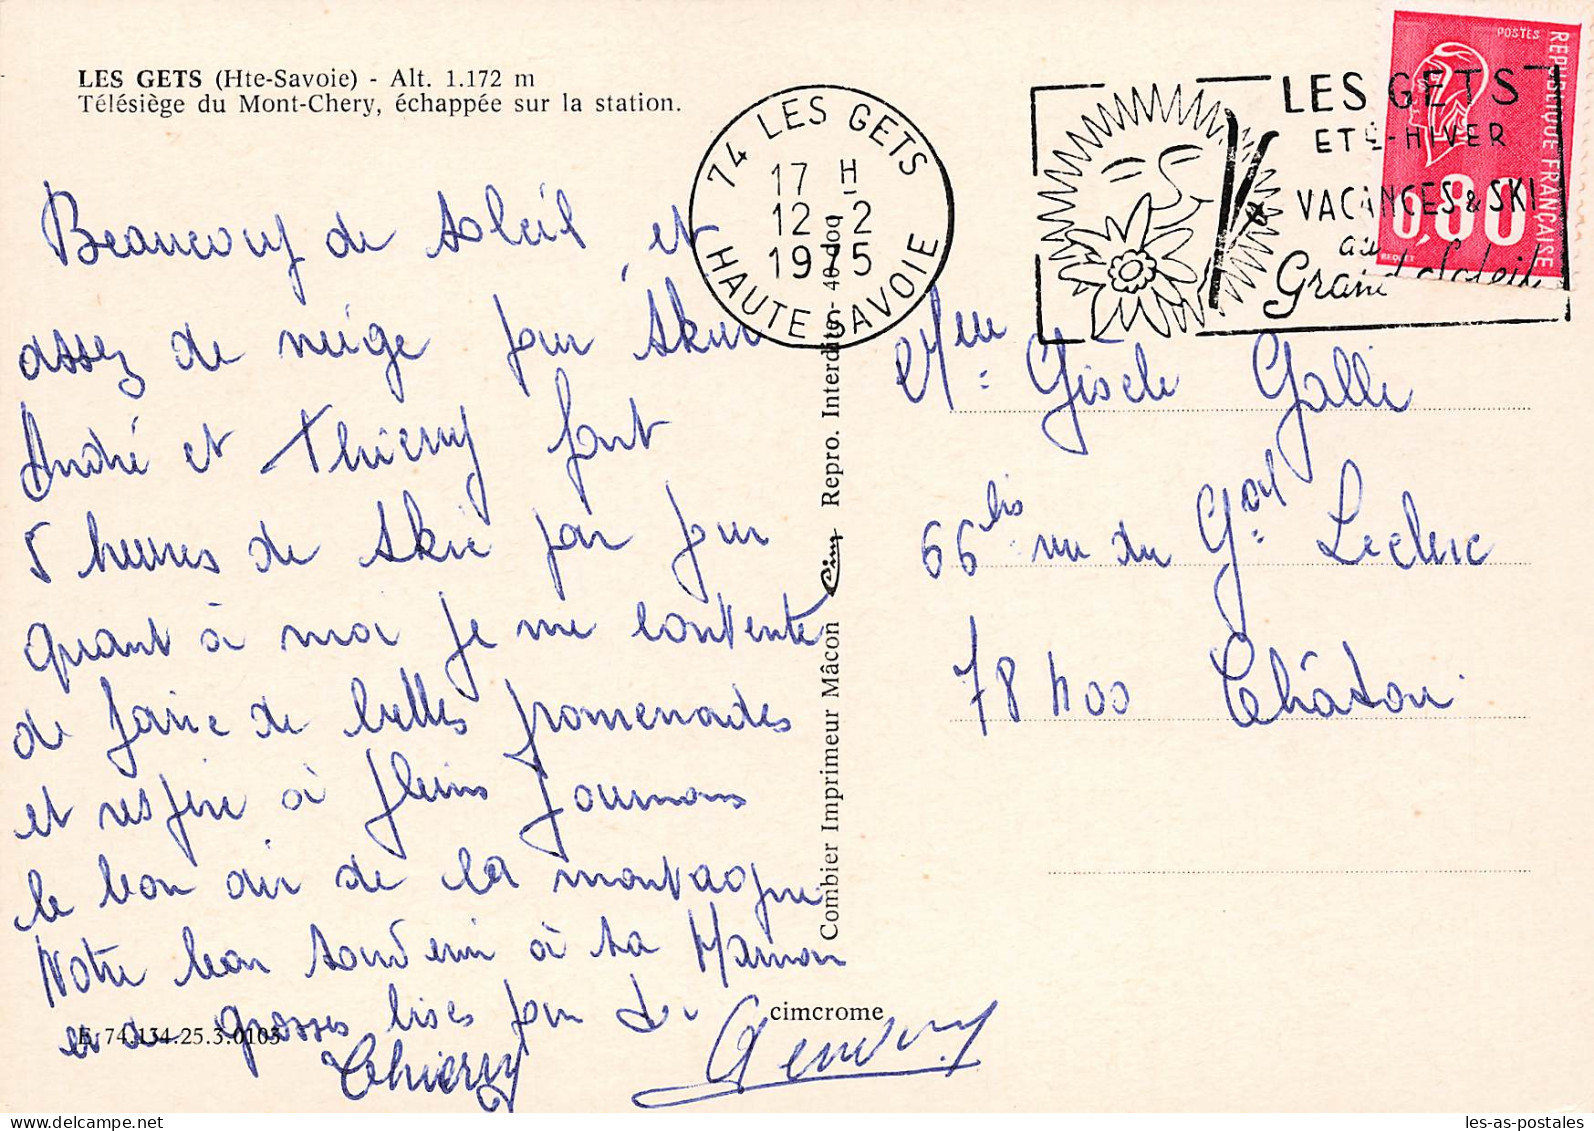 LES GETS (Hte-Savoie) - Alt. 1.172 m
Télésiège du Mont-Chery, échappée sur la station.
74 LES GETS
17 H
12-2
1975
HAUTE-SAVOIE
LES GETS
ETÉ-HIVER
VACANCES & SKI
au
Grand Soleil
POSTES
REPUBLIQUE FRANÇAISE
0,80
BEQUET
Beaucoup de soleil, et
assez de neige pour skier
André et Thierry font
5 heures de skie par jour
quant à moi je me contente
de faire de belles promenades
et respire à pleins poumons
le bon air de la montagne
Notre bon souvenir à ta Maman
et de grosses bises pour toi
Thierry
Melle Gisele Galli
66 bis rue du Gal Leclerc
78400 Châtou
Combier Imprimeur Mâcon Cim Repro. Interdite - 40 000
cimcrome
E. 74.134.25.3.0103
les-as-postales